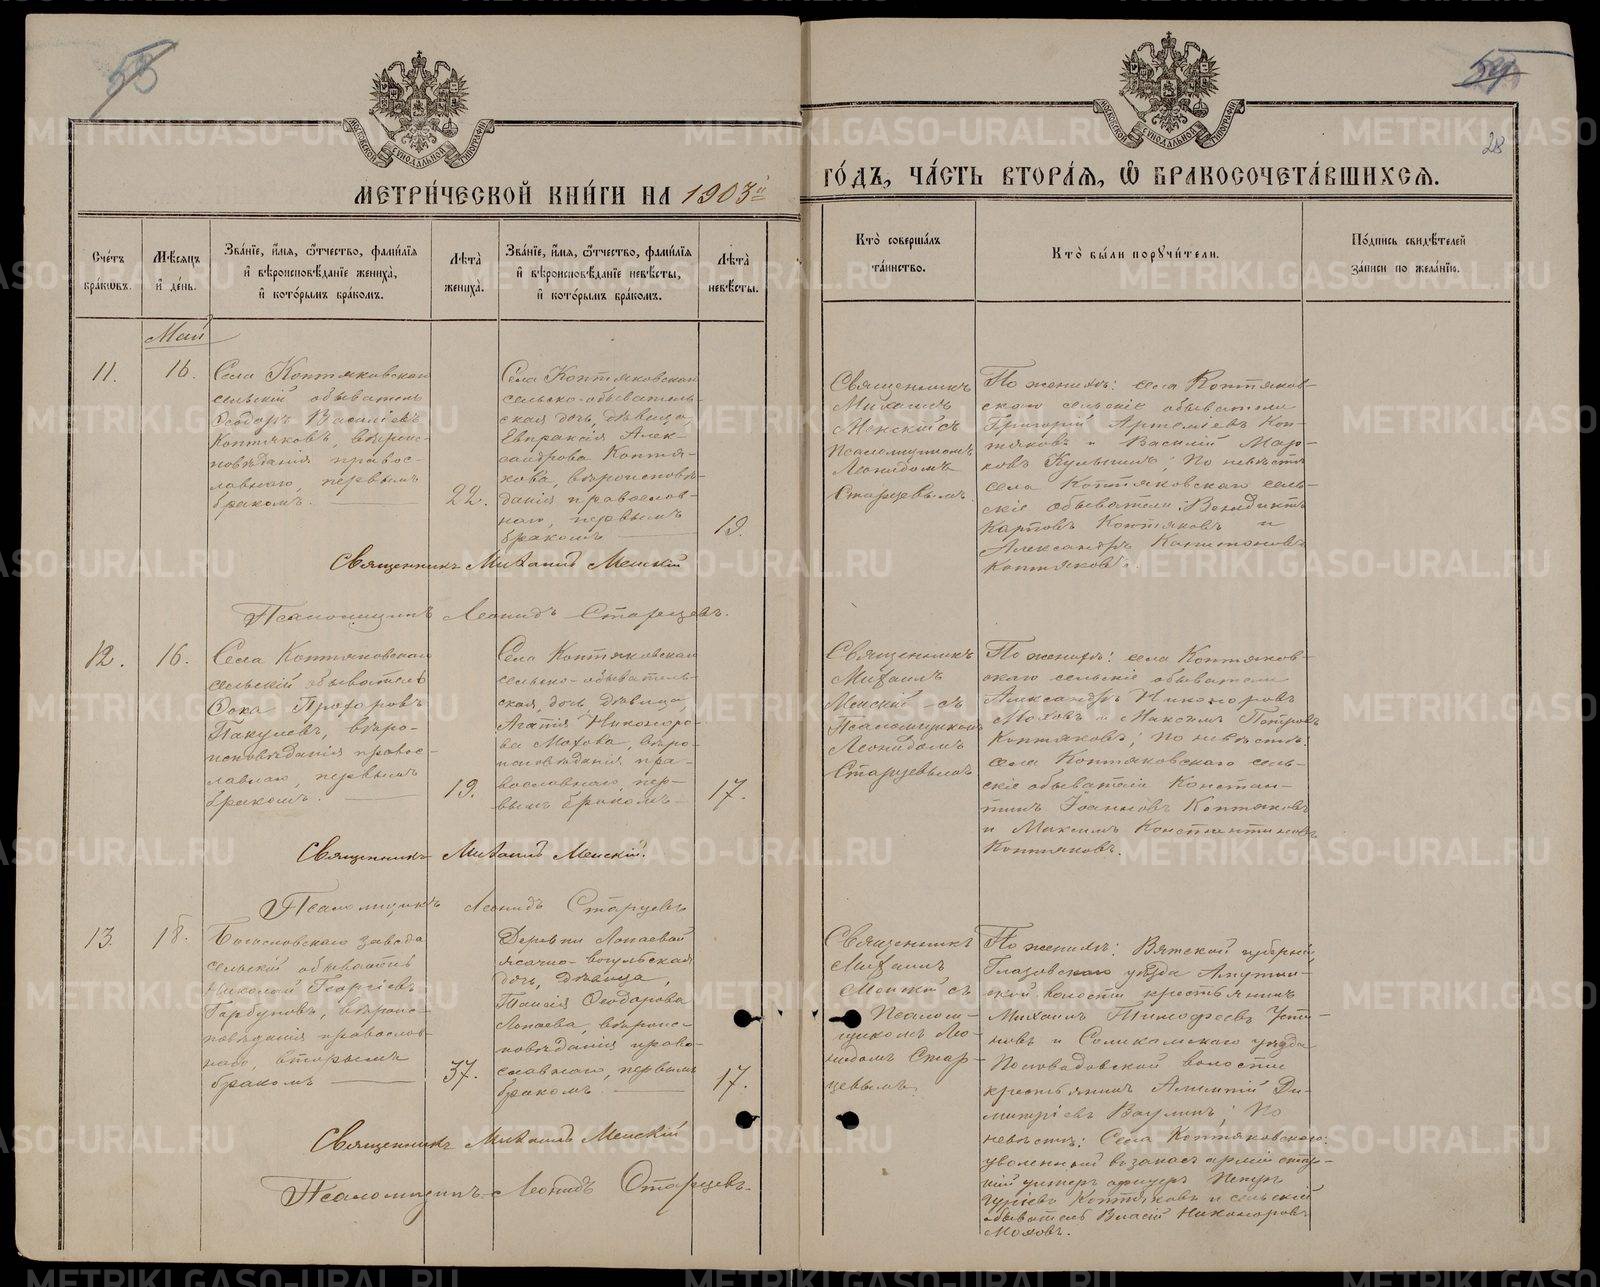 53
54
28
МОСКОВСКОЙ СѴНОДАЛЬНОЙ ТИПОГРАФІИ
МОСКОВСКОЙ СѴНОДАЛЬНОЙ ТИПОГРАФІИ
МЕТРИ́ЧЕСКОЙ КНИ́ГИ НА 1903й
ГО́ДЪ, ЧА́СТЬ ВТОРА́Я, Ѿ БРАКОСОЧЕТА́ВШИХСЯ.
Сче́тъ бра́ковъ.
Мѣ́сяцъ и҆ де́нь.
Зва́нїе, и҆́мя, ѻ҆́тчество, фами́лїя и҆ вѣроисповѣ́данїе жениха̀, и҆ кото́рымъ бра́комъ.
Лѣ́та жениха̀.
Зва́нїе, и҆́мя, ѻ҆́тчество, фами́лїя и҆ вѣроисповѣ́данїе невѣ́сты, и҆ кото́рымъ бра́комъ.
Лѣ́та невѣ́сты.
Кто̀ соверша́лъ та́инство.
Кто̀ бы́ли поручи́тели.
По́дпись свидѣ́телей за́писи по жела́нїю.
Май
11.
16.
Села Коптяковскаго
сельскій обыватель
Ѳеодоръ Василіевъ
Коптяковъ, вѣроис-
повѣданія правос-
лавнаго, первымъ
бракомъ.
22.
Села Коптяковскаго
сельско-обыватель-
ская дочь, дѣвица,
Евпраксія Алек-
сандрова Коптя-
кова, вѣроисповѣ-
данія православ-
наго, первымъ
бракомъ
19.
Священникъ
Михаилъ
Менскій съ
Псаломщикомъ
Леонидомъ
Старцевымъ.
По женихѣ: села Коптяков-
скаго сельскіе обыватели
Григорій Артеміевъ Коп-
тяковъ и Василій Мар-
ковъ Кулышевъ; по невѣстѣ
села Коптяковскаго сель-
скіе обыватели: Венедиктъ
Карповъ Коптяковъ и
Александръ Капитоновъ
Коптяковъ.
Священникъ Михаилъ Менскій
Псаломщикъ Леонидъ Старцевъ.
12.
16.
Села Коптяковскаго
сельскій обыватель
Ѳока Прохоровъ
Пакулевъ, вѣро-
исповѣданія правос-
лавнаго, первымъ
бракомъ.
19.
Села Коптяковскаго
сельско-обыватель-
ская дочь, дѣвица,
Агапія Никаноро-
ва Мохова, вѣро-
исповѣданія пра-
вославнаго, пер-
вымъ бракомъ
17.
Священникъ
Михаилъ
Менскій съ
Псаломщикомъ
Леонидомъ
Старцевымъ
По женихѣ: села Коптяков-
скаго сельскіе обыватели
Александръ Никаноровъ
Моховъ и Максимъ Петровъ
Коптяковъ; по невѣстѣ:
села Коптяковскаго сель-
скіе обыватели Констан-
тинъ Іоанновъ Коптяковъ
и Максимъ Константиновъ
Коптяковъ.
Священникъ Михаилъ Менскій.
Псаломщикъ Леонидъ Старцевъ
13.
18.
Богословскаго завода
сельскій обыватель
Николай Георгіевъ
Горбуновъ, вѣроис-
повѣданія православ-
наго, вторымъ
бракомъ
37.
Деревни Лопаевой
ясачно-вогульская
дочь, дѣвица,
Таисія Ѳеодорова
Лопаева, вѣроис-
повѣданія право-
славнаго, первымъ
бракомъ
17.
Священникъ
Михаилъ
Менскій съ
Псалом-
щикомъ Лео-
нидомъ Стар-
цевымъ.
По женихѣ: Вятской губерніи,
Глазовскаго уѣзда
волости крестьянинъ
Михаилъ Тимофеевъ Усти-
новъ и Соликамскаго уѣзда
Половодовской волости
крестьянинъ Ди-
митріевъ Ваулинъ; по
невѣстѣ: Села Коптяковскаго:
уволенный въ запасъ арміи стар-
шій унтеръ офицеръ Петръ
Гуріевъ Коптяковъ и сельскій
обыватель Власій Никаноровъ
Моховъ.
Священникъ Михаилъ Менскій
Псаломщикъ Леонидъ Старцевъ.
METRIKI.GASO-URAL.RU